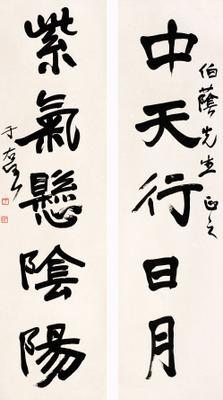 伯蔭先生正之
中天行日月
紫氣懸陰陽
于右任